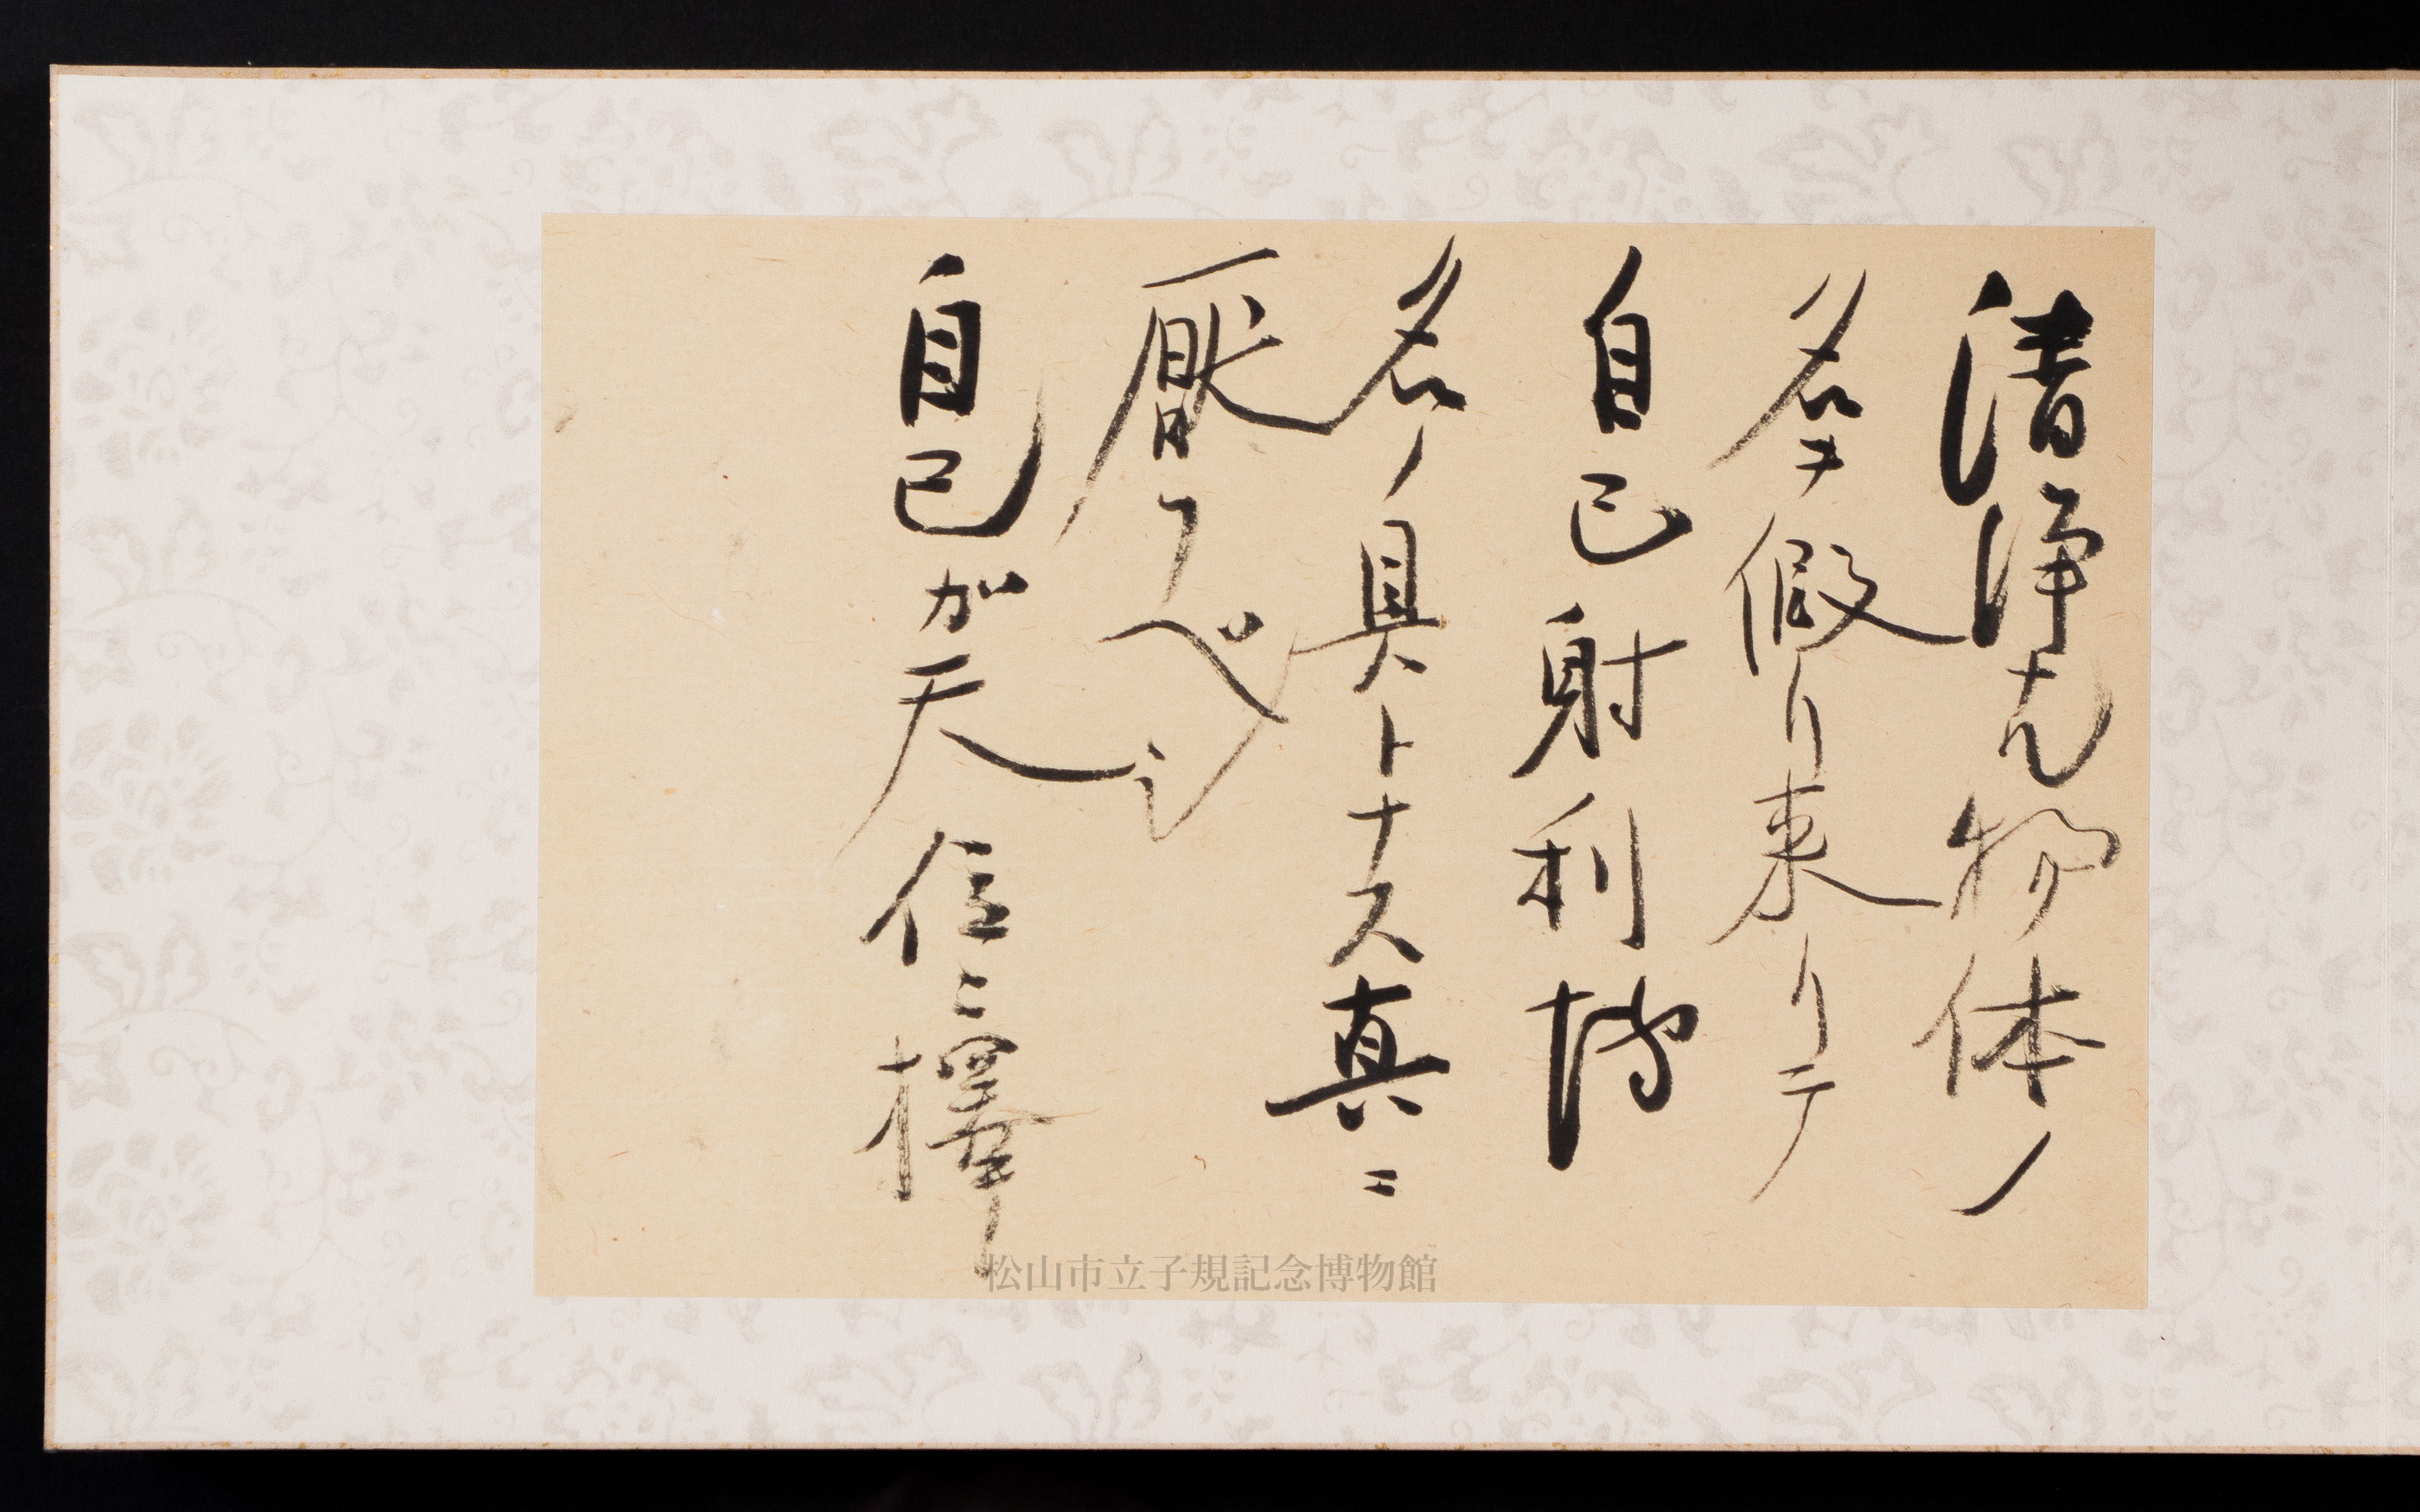 清浄ナル物体ノ
名ヲ假リ来リテ
自己射利博
名ノ具トナス真ニ
厭フベシ
自己ガ天位ニ擇
松山市立子規記念博物館